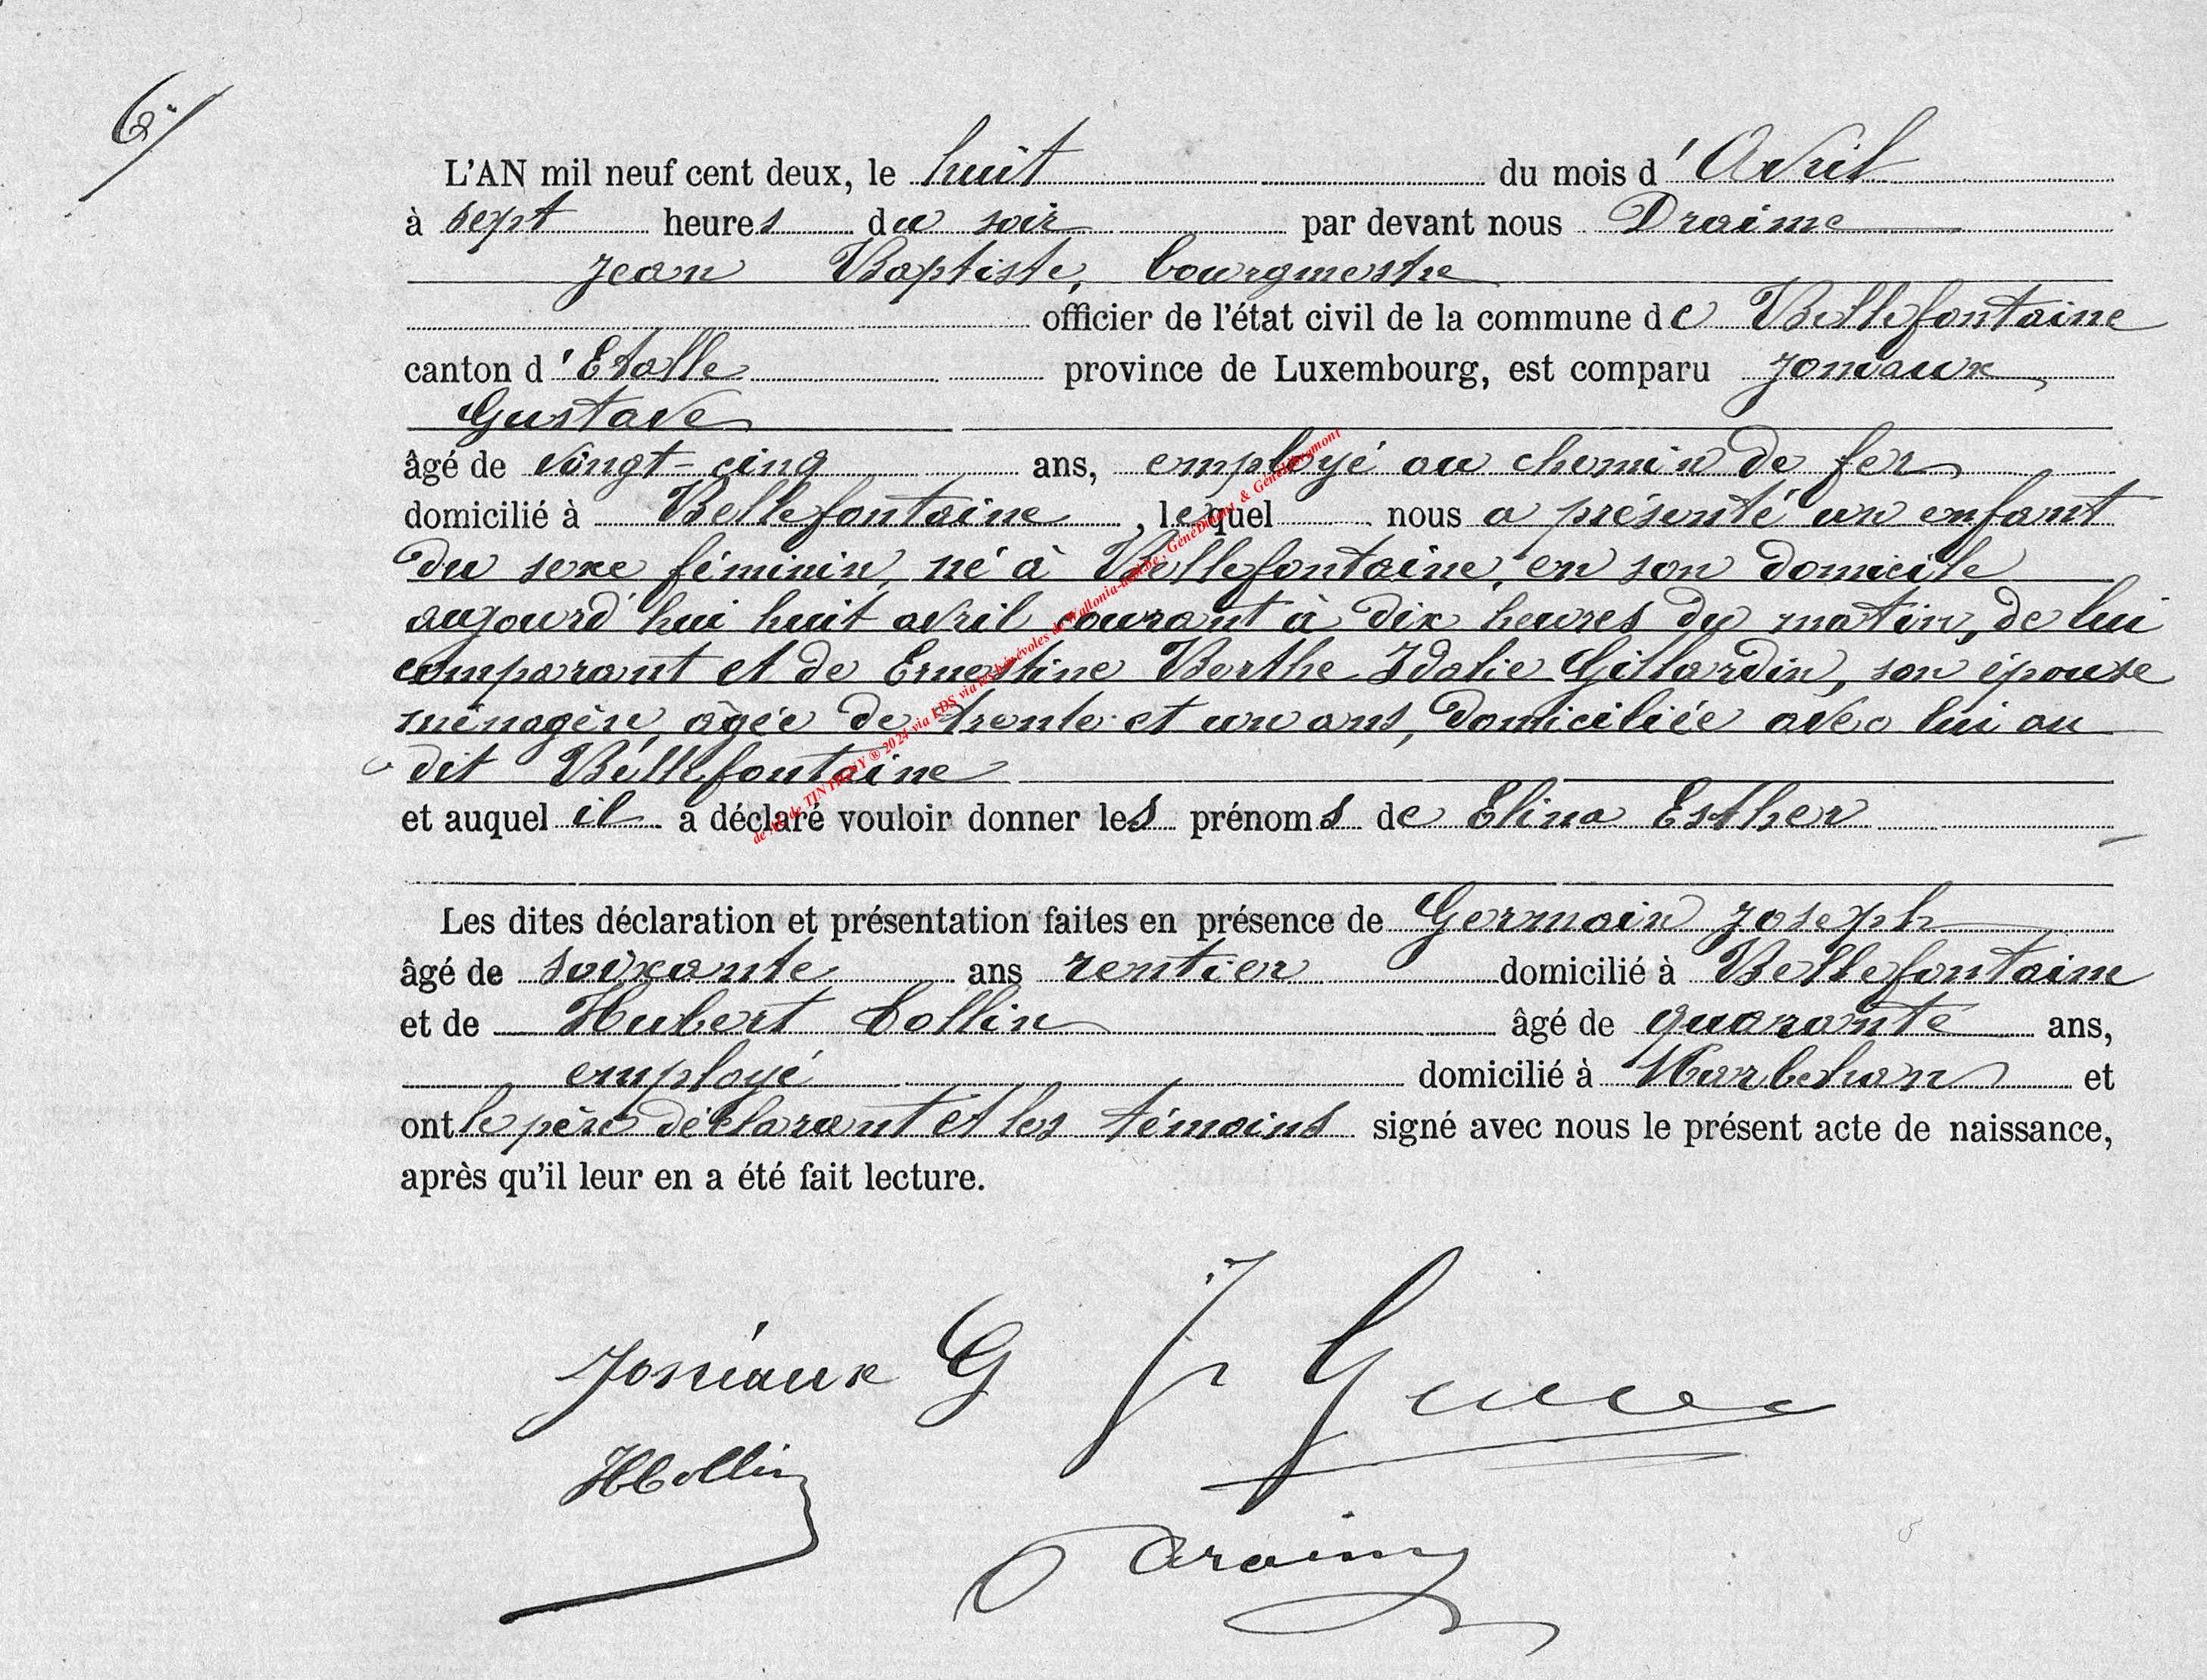 6/
L'AN mil neuf cent deux, le huit du mois d'Avril
à sept heures du soir par devant nous Draime
Jean Baptiste, bourgmestre
officier de l'état civil de la commune de Bellefontaine
canton d'Etalle province de Luxembourg, est comparu Joniaux,
Gustave
âgé de vingt-cinq ans, employé au chemin de fer
domicilié à Bellefontaine, lequel nous a présenté un enfant
du sexe féminin, né à Bellefontaine, en son domicile
aujourd'hui huit avril courant à dix heures du matin, de lui
comparant et de Ernestine Berthe Idalie Gillardin, son épouse
ménagère, âgée de trente et un ans, domiciliée avec lui au
dit Bellefontaine
et auquel il a déclaré vouloir donner les prénoms de Elina Esther
Les dites déclaration et présentation faites en présence de Germain Joseph
âgé de soixante ans rentier domicilié à Bellefontaine
et de Hubert Collin âgé de quarante ans,
employé domicilié à Marbehan et
ont le père déclarant et les témoins signé avec nous le présent acte de naissance,
après qu'il leur en a été fait lecture.
Joniaux G
HCollin
Draime